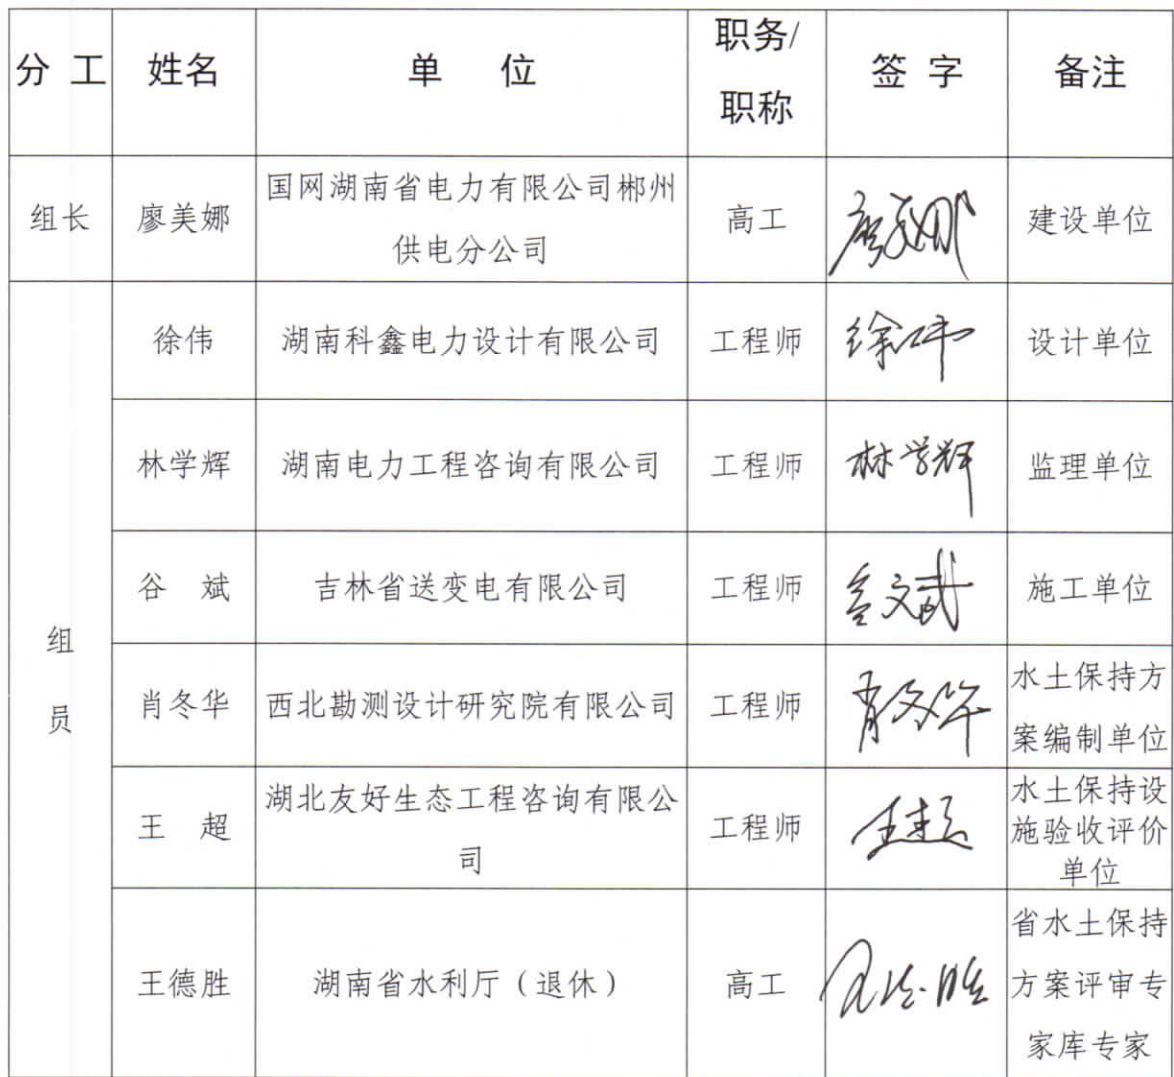 分 工 姓名 单 位 职务/职称 签 字 备注
组长 廖美娜 国网湖南省电力有限公司郴州供电分公司 高工 廖美娜 建设单位
组员
徐伟 湖南科鑫电力设计有限公司 工程师 徐伟 设计单位
林学辉 湖南电力工程咨询有限公司 工程师 林学辉 监理单位
谷 斌 吉林省送变电有限公司 工程师 施工单位
肖冬华 西北勘测设计研究院有限公司 工程师 肖冬华 水土保持方案编制单位
王 超 湖北友好生态工程咨询有限公司 工程师 王超 水土保持设施验收评价单位
王德胜 湖南省水利厅（退休） 高工 王德胜 省水土保持方案评审专家库专家